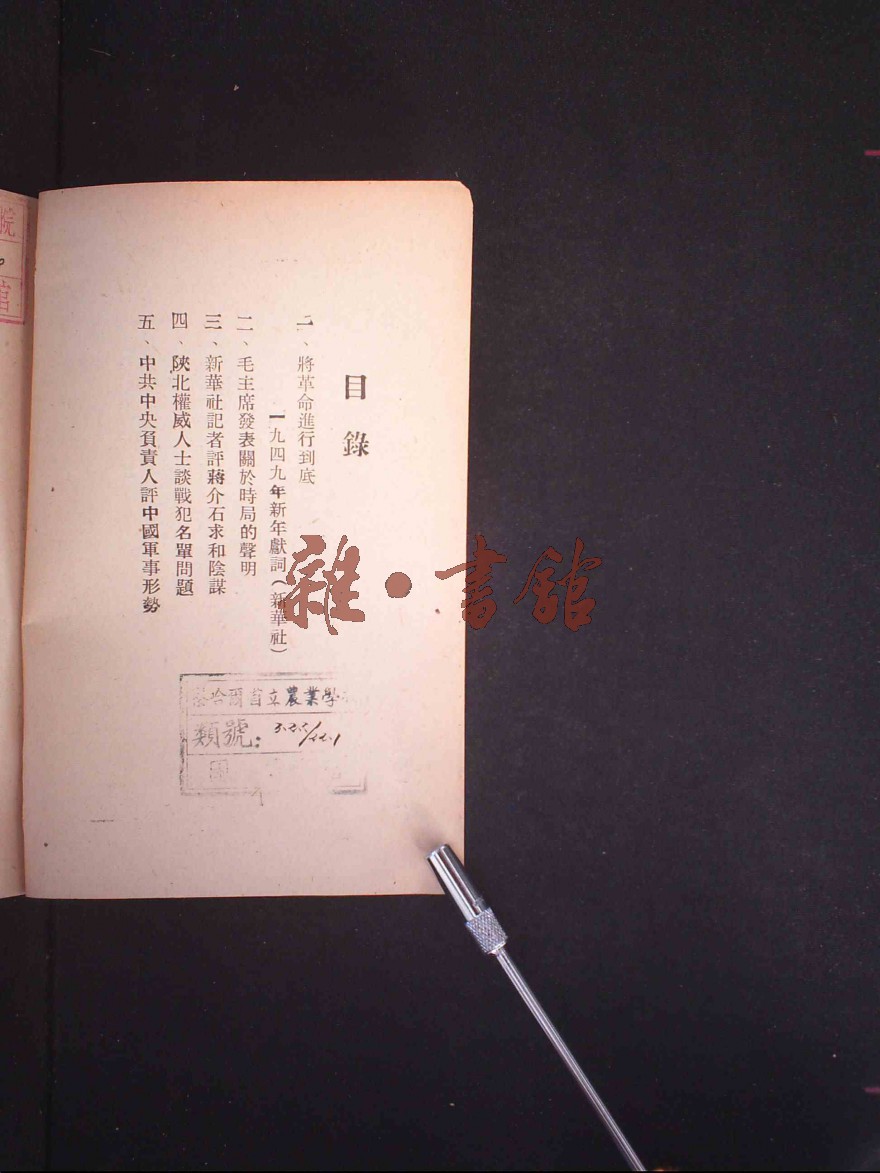 目錄
一、將革命進行到底
一九四九年新年獻詞（新華社）
二、毛主席發表關於時局的聲明
三、新華社記者評蔣介石求和陰謀
四、陝北權威人士談戰犯名單問題
五、中共中央負責人評中國軍事形勢
雜·書館
哈爾省立農業學
類號：
院
館